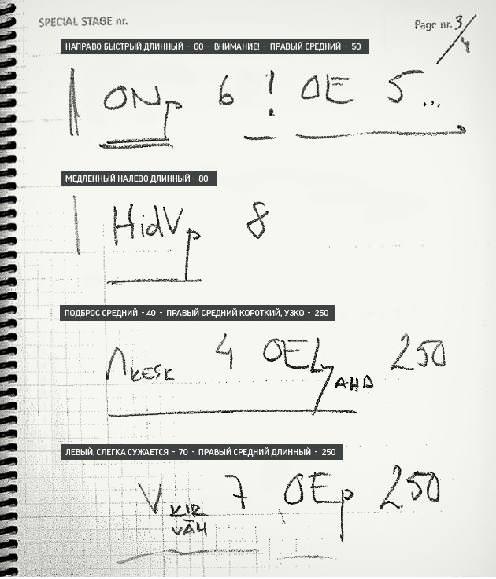 SPECIAL STAGE nr.
Page nr. 3/4
НАПРАВО БЫСТРЫЙ ДЛИННЫЙ - 60 - ВНИМАНИЕ! - ПРАВЫЙ СРЕДНИЙ - 50
ONp 6 ! OE 5...
МЕДЛЕННЫЙ НАЛЕВО ДЛИННЫЙ - 80
HidVp 8
ПОДБРОС СРЕДНИЙ - 40 - ПРАВЫЙ СРЕДНИЙ КОРОТКИЙ, УЗКО - 250
KESK 4 OEL AHD 250
ЛЕВЫЙ, СЛЕГКА СУЖАЕТСЯ - 70 - ПРАВЫЙ СРЕДНИЙ ДЛИННЫЙ - 250
V KIR VÄH 7 OEp 250